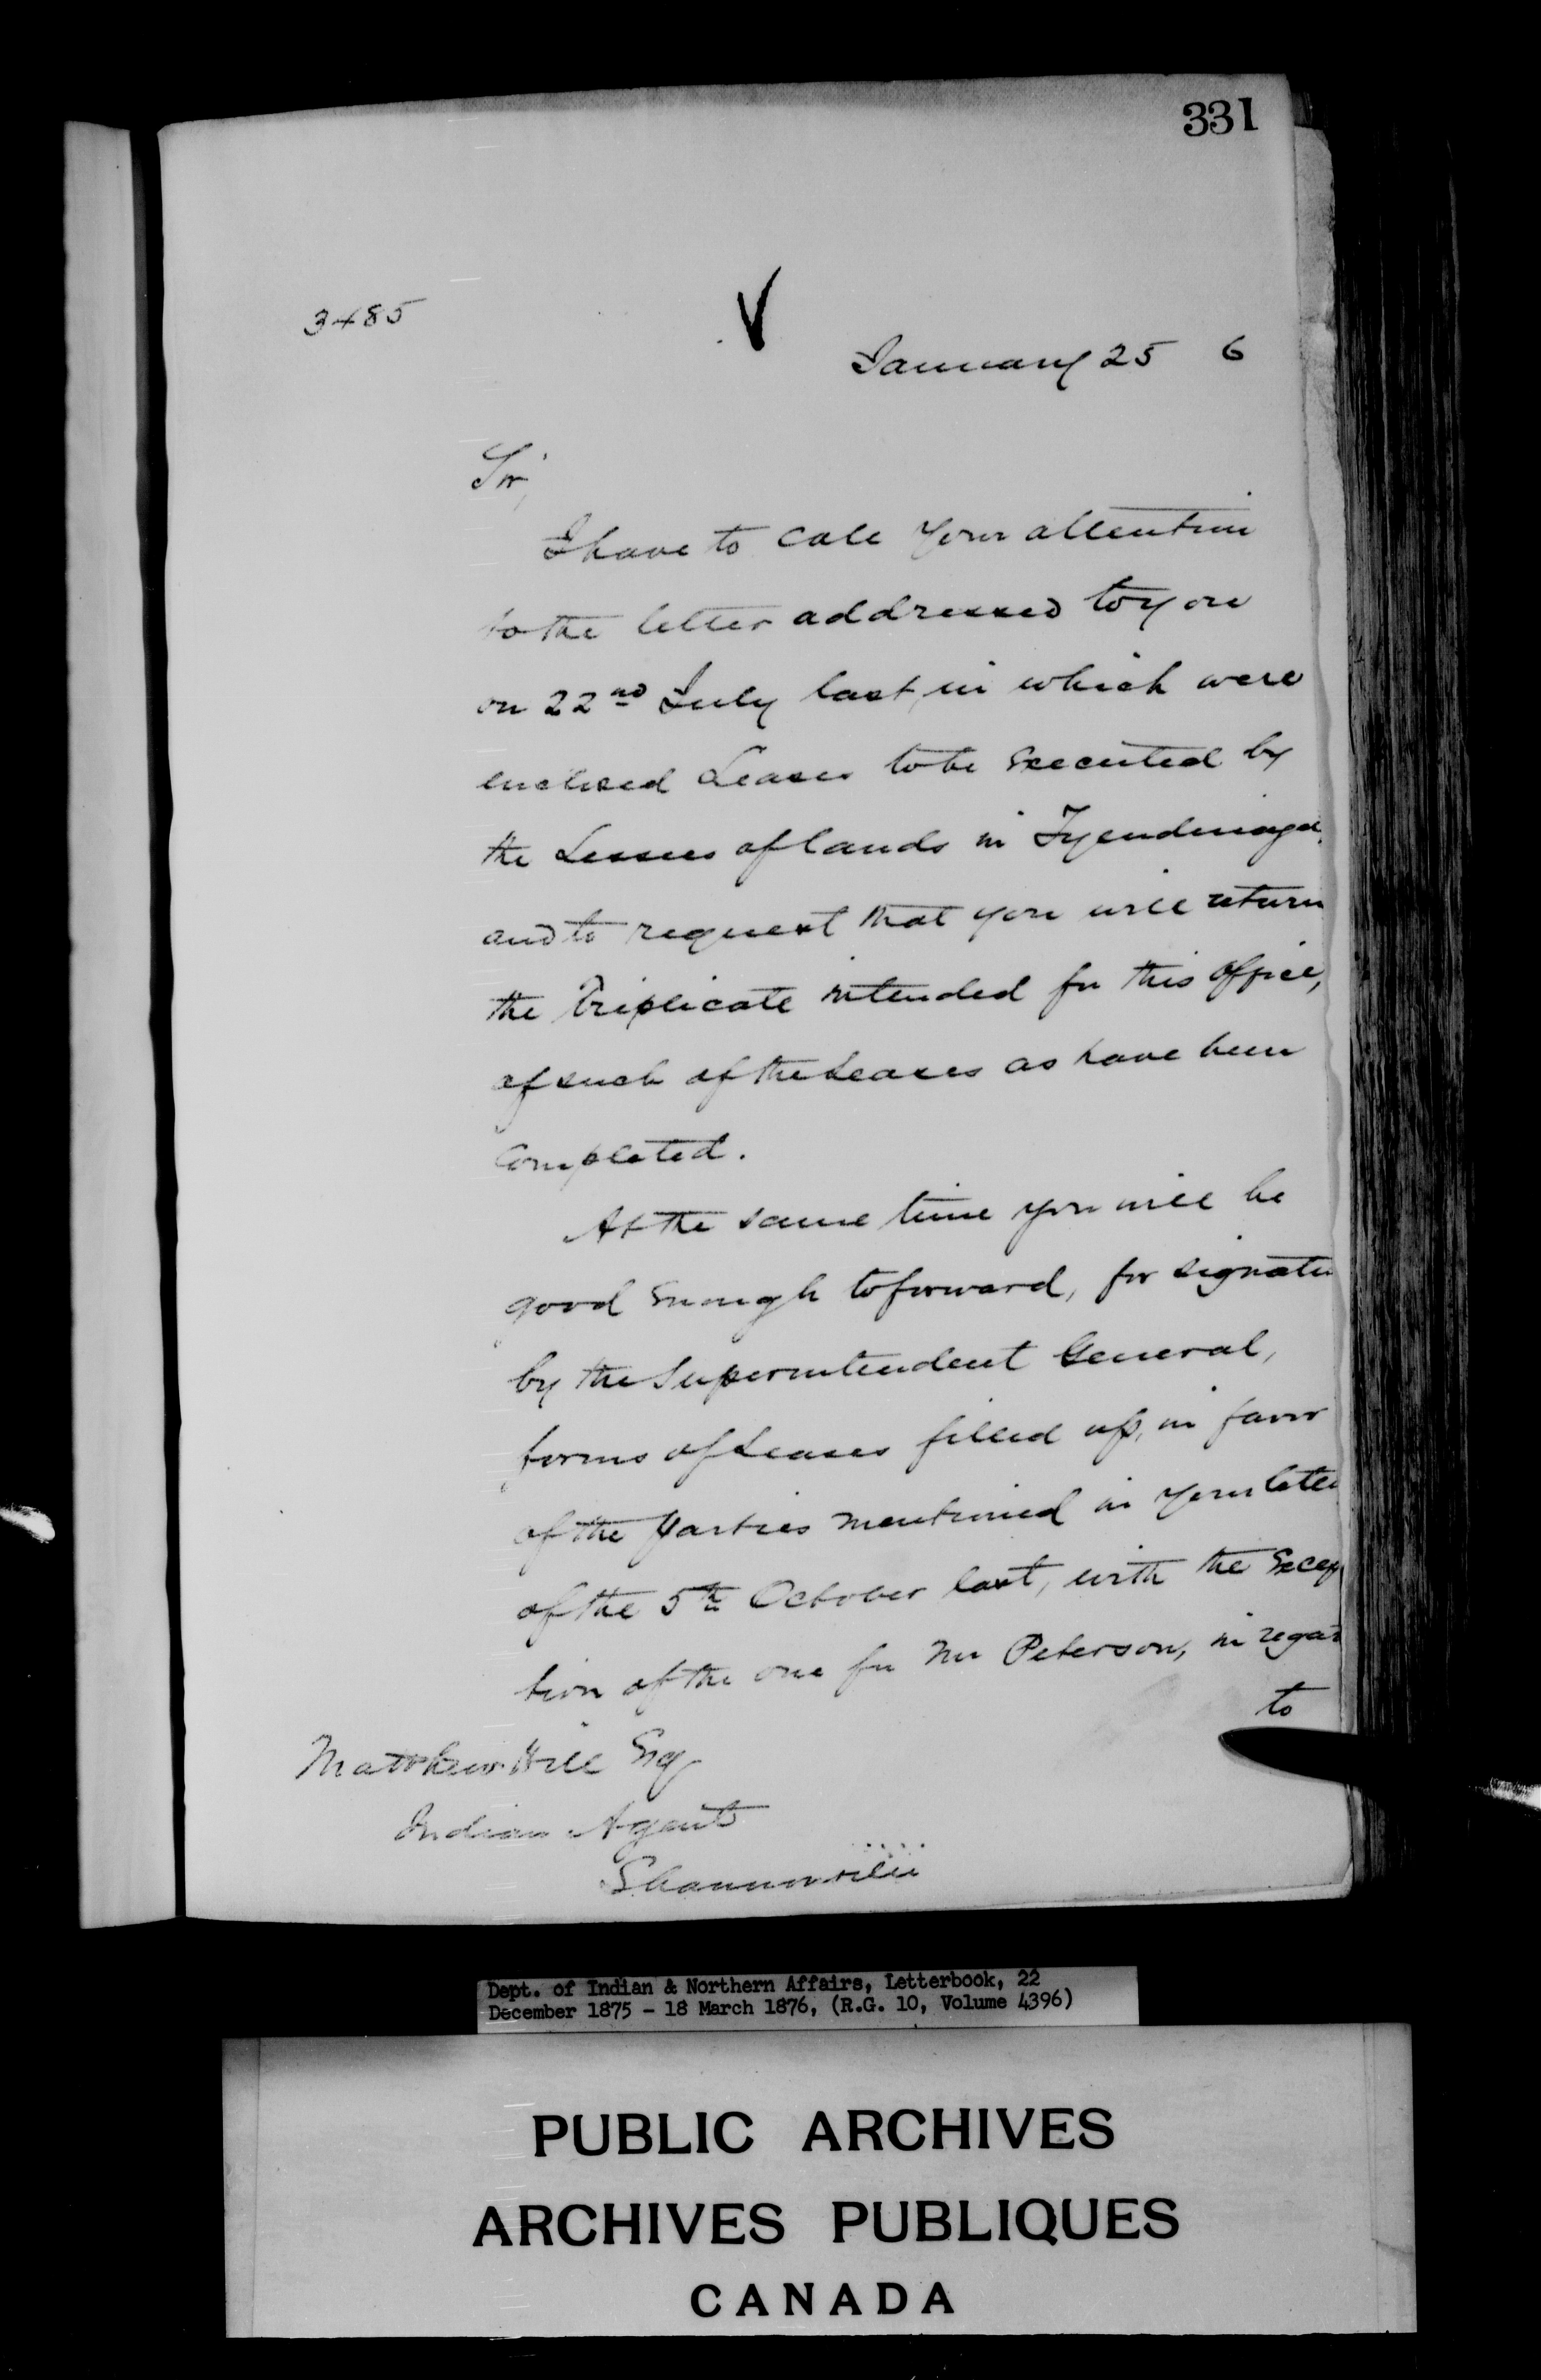 331
3485
January 25 6
Sir,
I have to call your attention
to the letter addressed to you
on 22nd July last, in which were
enclosed Leases to be executed by
the Lessees of lands in Tyendinaga,
and to request that you will return
the Triplicate intended for this Office,
of such of the Leases as have been
completed.
At the same time you will be
good enough to forward, for signatu
by the Superintendent General,
forms of Leases filled up, in favor
of the parties mentioned in your letter
of the 5th October last, with the excep
tion of the one for Mr Peterson, in regard
to
Matthew Hill Esq
Indian Agent
Shannonville
Dept. of Indian & Northern Affairs, Letterbook, 22
December 1875 - 18 March 1876, (R.G. 10, Volume 4396)
PUBLIC ARCHIVES
ARCHIVES PUBLIQUES
CANADA